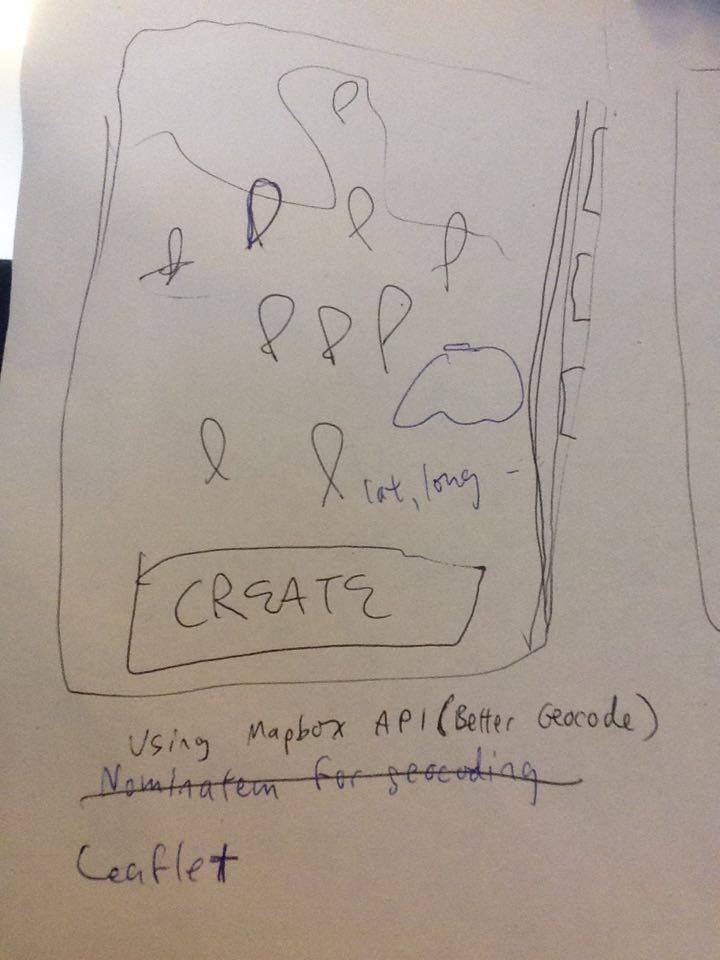 lat, long -
CREATE
Using Mapbox API (Better Geocode)
Nominatem for geocoding
Leaflet